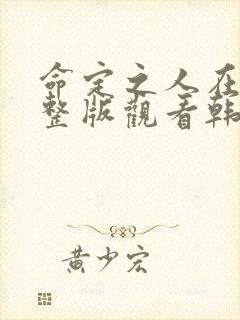 命定之人在
整版觀看韩
黄少宏